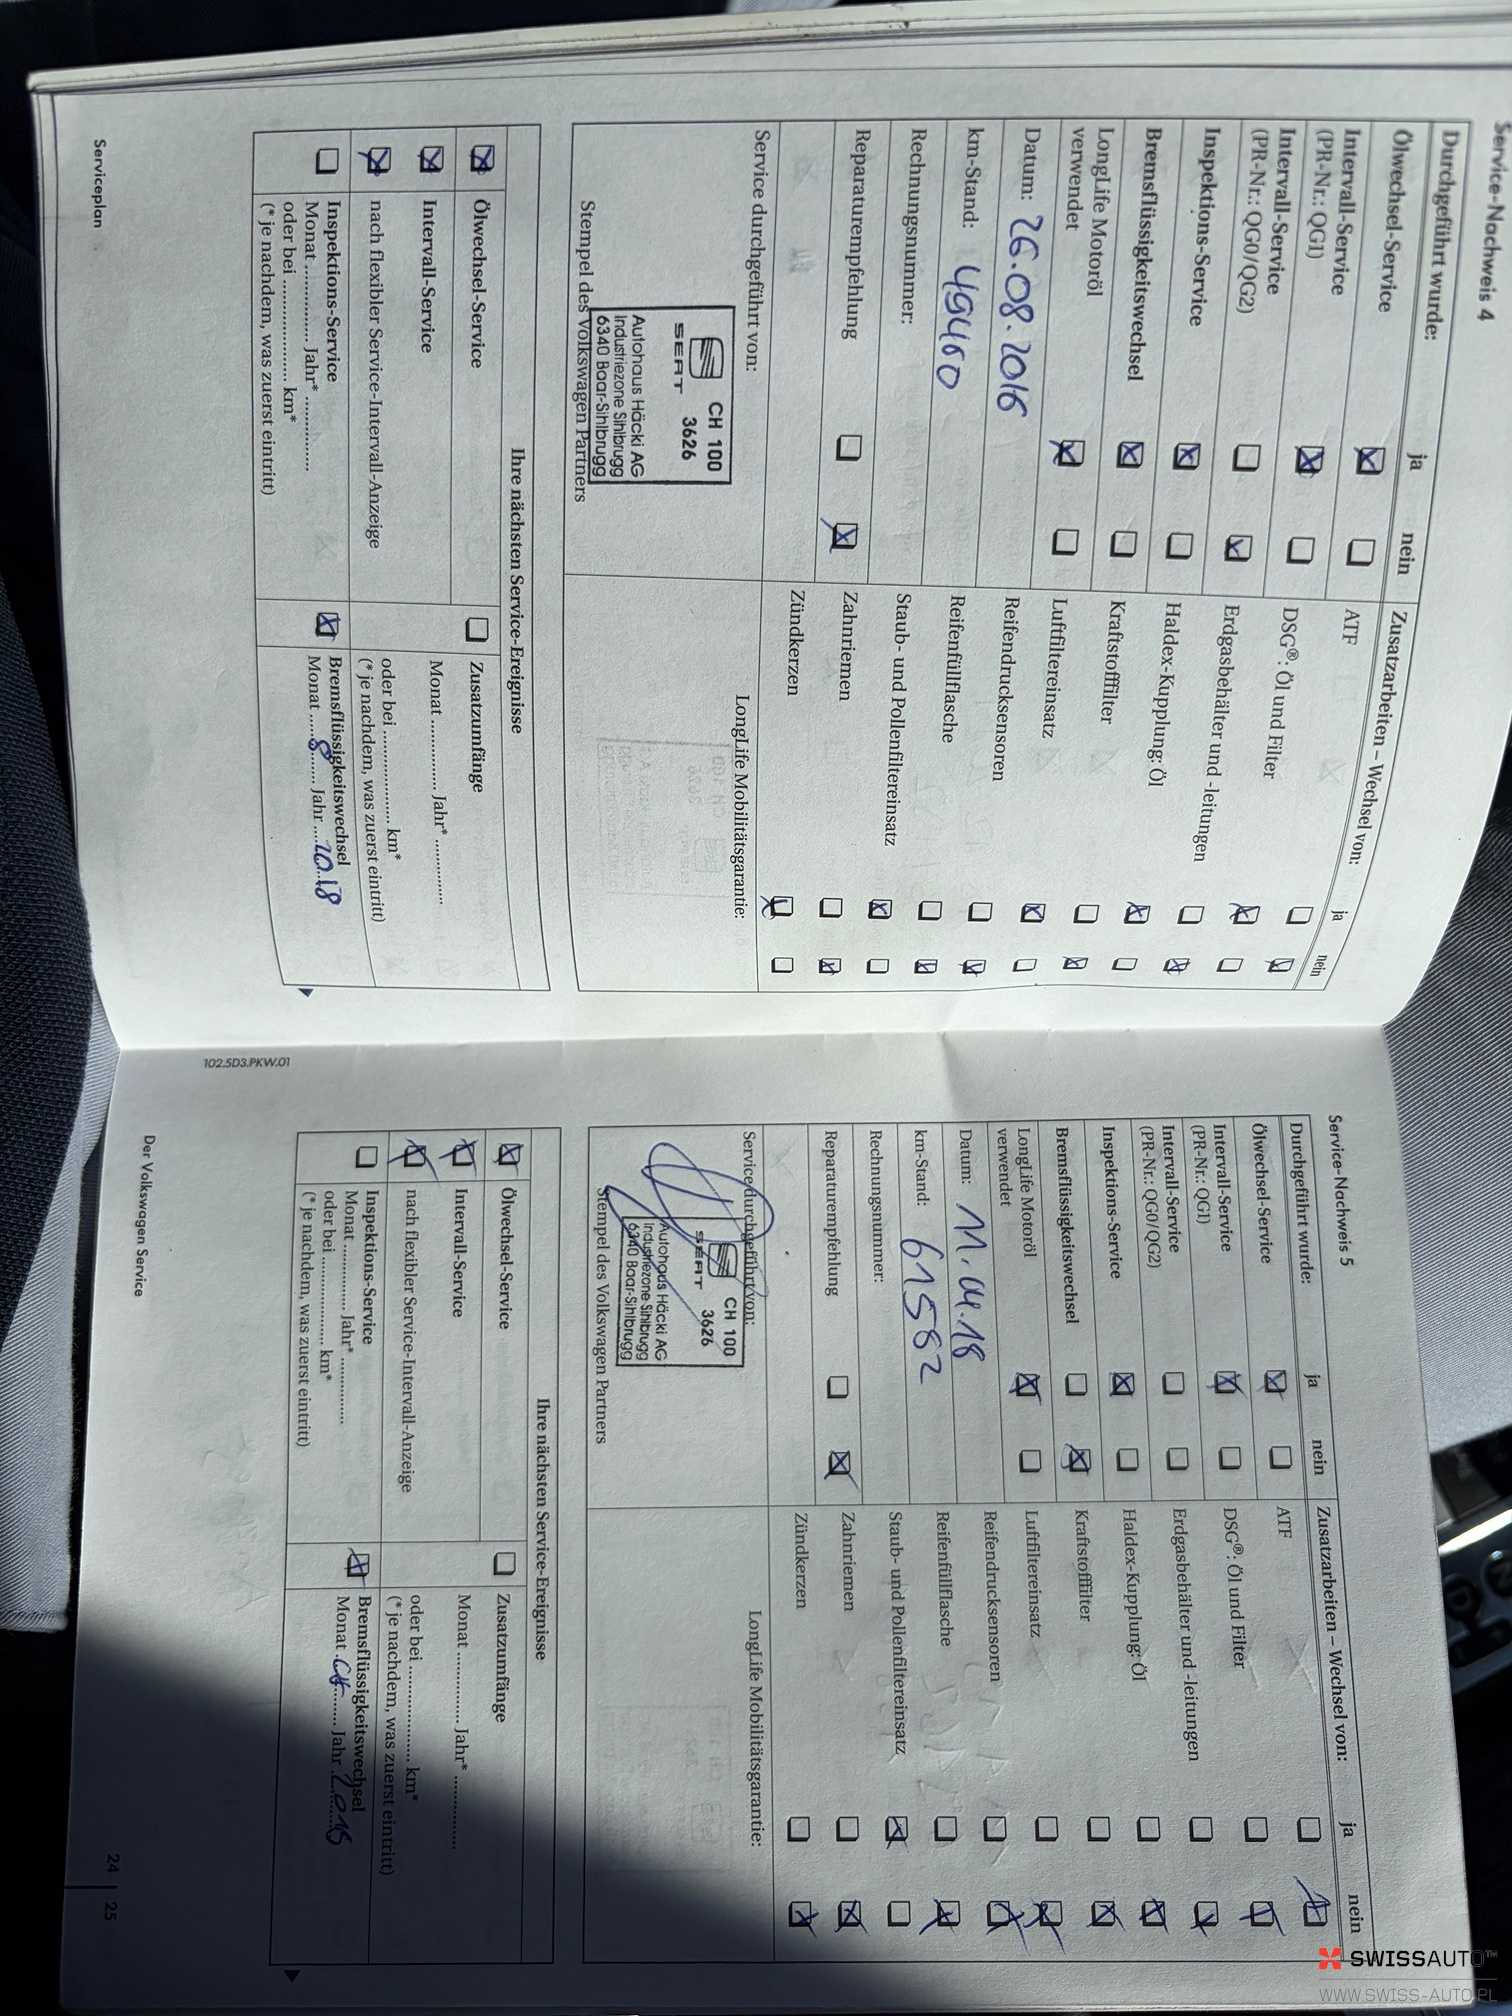 Service-Nachweis 4
Durchgeführt wurde: ja nein
Ölwechsel-Service
Intervall-Service
(PR-Nr.: QG1)
Intervall-Service
(PR-Nr.: QG0/QG2)
Inspektions-Service
Bremsflüssigkeitswechsel
LongLife Motoröl
verwendet
Datum: 26.08.2016
km-Stand: 49460
Rechnungsnummer:
Reparaturempfehlung
Zusatzarbeiten – Wechsel von: ja nein
ATF
DSG®: Öl und Filter
Erdgasbehälter und -leitungen
Haldex-Kupplung: Öl
Kraftstofffilter
Luftfiltereinsatz
Reifendrucksensoren
Reifenfüllflasche
Staub- und Pollenfiltereinsatz
Zahnriemen
Zündkerzen
Service durchgeführt von:
CH 100
3626
SEAT
Autohaus Häcki AG
Industriezone Sihlbrugg
6340 Baar-Sihlbrugg
Stempel des Volkswagen Partners
LongLife Mobilitätsgarantie:
Ihre nächsten Service-Ereignisse
Ölwechsel-Service
Intervall-Service
nach flexibler Service-Intervall-Anzeige
Inspektions-Service
Monat ................ Jahr* ................
oder bei ...................... km*
(* je nachdem, was zuerst eintritt)
Zusatzumfänge
Monat ................ Jahr* ................
oder bei ...................... km*
(* je nachdem, was zuerst eintritt)
Bremsflüssigkeitswechsel
Monat ...8... Jahr ...2018
Serviceplan
Service-Nachweis 5
Durchgeführt wurde: ja nein
Ölwechsel-Service
Intervall-Service
(PR-Nr.: QG1)
Intervall-Service
(PR-Nr.: QG0/QG2)
Inspektions-Service
Bremsflüssigkeitswechsel
LongLife Motoröl
verwendet
Datum: 11.04.18
km-Stand: 61582
Rechnungsnummer:
Reparaturempfehlung
Zusatzarbeiten – Wechsel von: ja nein
ATF
DSG®: Öl und Filter
Erdgasbehälter und -leitungen
Haldex-Kupplung: Öl
Kraftstofffilter
Luftfiltereinsatz
Reifendrucksensoren
Reifenfüllflasche
Staub- und Pollenfiltereinsatz
Zahnriemen
Zündkerzen
Service durchgeführt von:
CH 100
3626
SEAT
Autohaus Häcki AG
Industriezone Sihlbrugg
6340 Baar-Sihlbrugg
Stempel des Volkswagen Partners
LongLife Mobilitätsgarantie:
Ihre nächsten Service-Ereignisse
Ölwechsel-Service
Intervall-Service
nach flexibler Service-Intervall-Anzeige
Inspektions-Service
Monat ................ Jahr* ................
oder bei ...................... km*
(* je nachdem, was zuerst eintritt)
Zusatzumfänge
Monat ................ Jahr* ................
oder bei ...................... km*
(* je nachdem, was zuerst eintritt)
Bremsflüssigkeitswechsel
Monat ........ Jahr ........
102.5D3.PKW.01
Der Volkswagen Service
24 | 25
SWISSAUTO™
WWW.SWISS-AUTO.PL